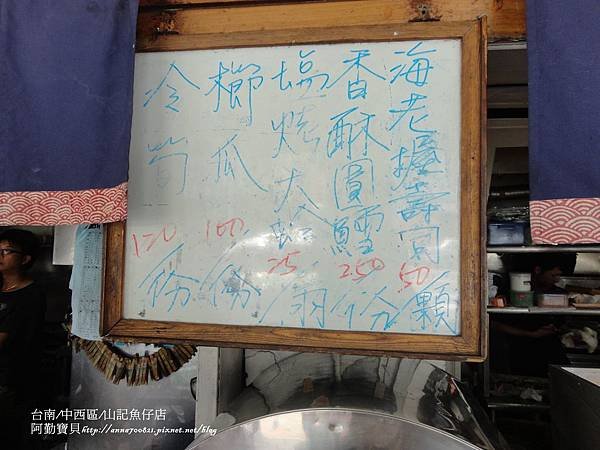 海老握壽司 50/顆
香酥圓鱈 250/份
塩烤大蛤 25/個
櫛瓜 100/份
冷筍 120/份
台南/中西區/山記魚仔店
阿勤寶貝http://anna700821.pixnet.net/blog